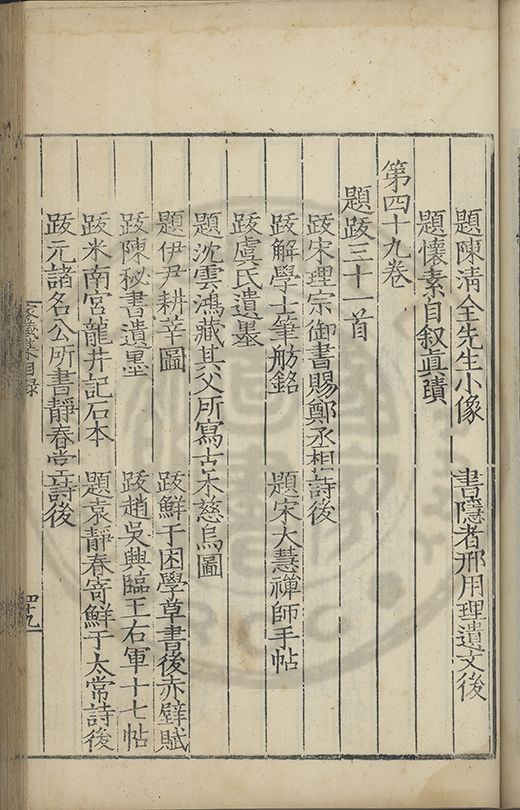 題陳清全先生小像　書隱者邢用理遺文後
題懷素自叙真蹟
第四十九卷
題跋三十一首
跋宋理宗御書賜鄭丞相詩後
跋解學士筆舫銘　題宋大慧禪師手帖
跋虞氏遺墨
題沈雲鴻藏其父所寫古木慈烏圖
題伊尹耕莘圖　跋鮮于困學草書後赤壁賦
跋陳秘書遺墨　跋趙吳興臨王右軍十七帖
跋米南宮龍井記石本　題袁靜春寄鮮于太常詩後
跋元諸名公所書靜春堂詩後
家藏集目録
四十九